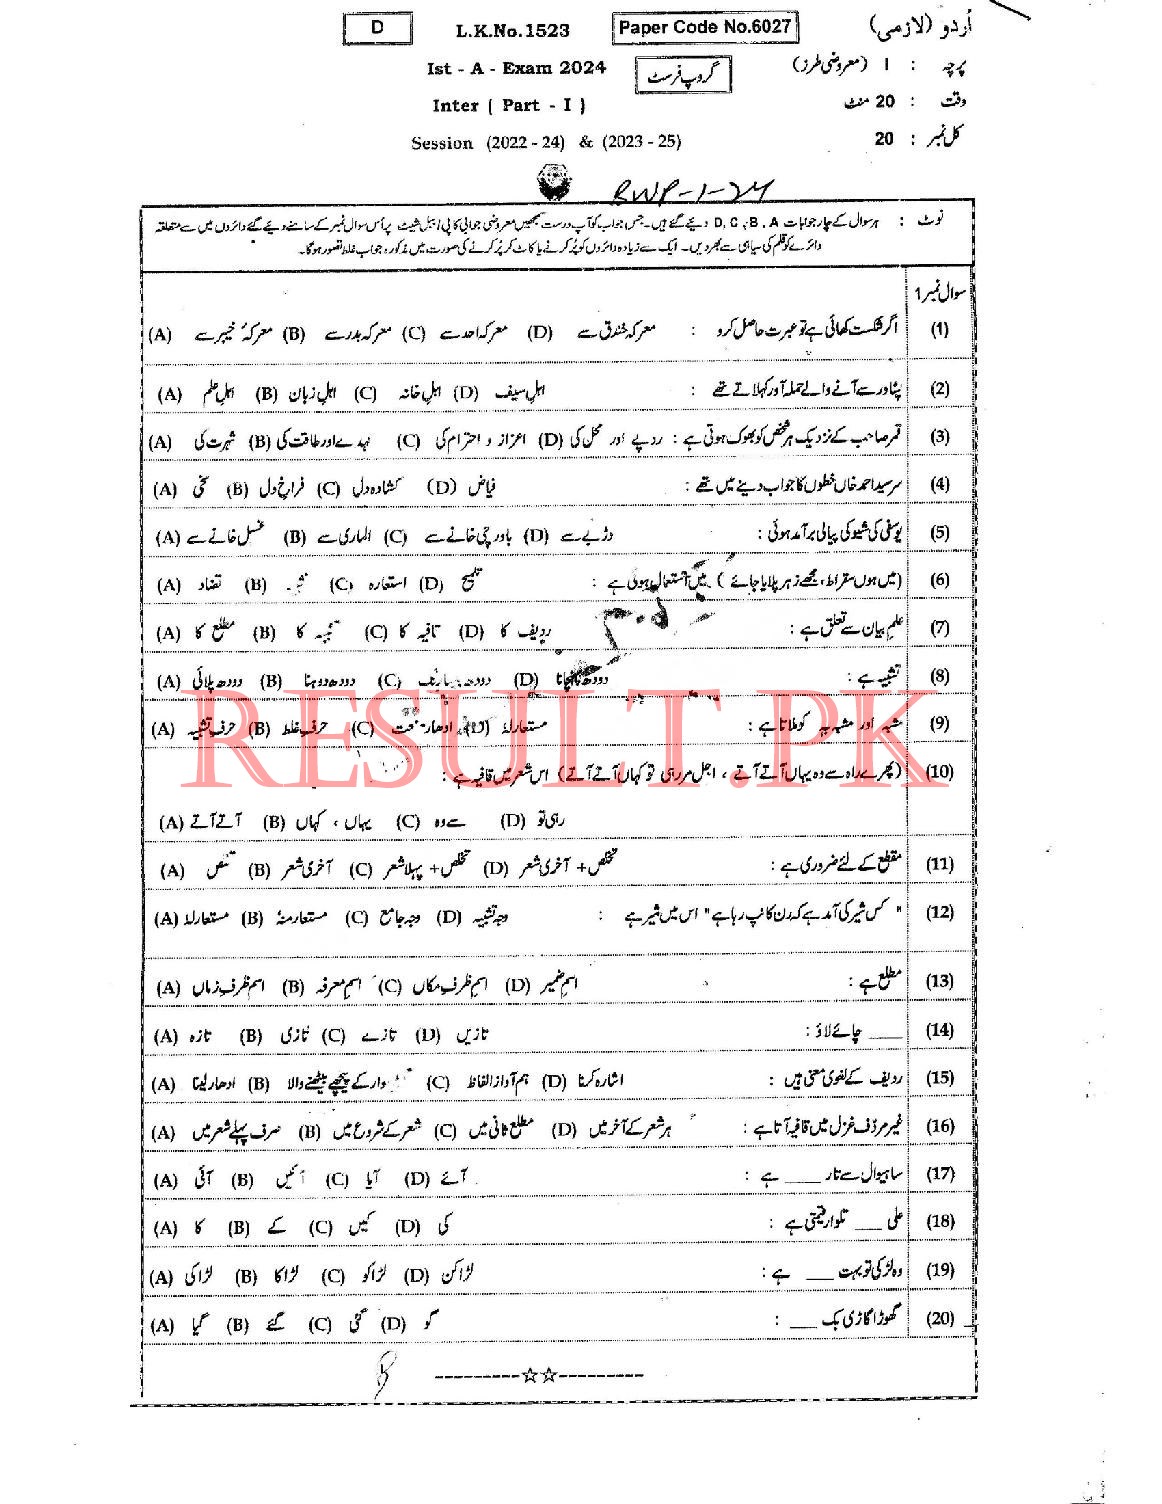 اُردو (لازمی) Paper Code No.6027 L.K.No.1523 D
پرچہ : I (معروضی طرز) گروپ فرسٹ Ist - A - Exam 2024
وقت : 20 منٹ Inter ( Part - I )
کل نمبر : 20 Session (2022 - 24) & (2023 - 25)
BWP-1-24
نوٹ : ہر سوال کے چار جوابات D, C, B, A دیئے گئے ہیں۔ جس جواب کو آپ درست سمجھیں معروضی جوابی کاپی / ببل شیٹ پر اُس سوال نمبر کے سامنے دیئے گئے دائروں میں سے متعلقہ
دائرے کو قلم کی سیاہی سے بھر دیں۔ ایک سے زیادہ دائروں کو پُر کرنے یا کاٹ کر پُر کرنے کی صورت میں مذکورہ جواب غلط تصور ہوگا۔
سوال نمبر 1
(1) اگر شکست کھائی ہے تو عبرت حاصل کرو : (A) معرکۂ خیبر سے (B) معرکہ بدر سے (C) معرکہ احد سے (D) معرکہ خندق سے
(2) پشاور سے آنے والے حملہ آور کہلاتے تھے : (A) اہلِ علم (B) اہلِ زبان (C) اہلِ خانہ (D) اہلِ سیف
(3) قمر صاحب کے نزدیک ہر شخص کو بھوک ہوتی ہے : (A) شہرت کی (B) عہدے اور طاقت کی (C) اعزاز و احترام کی (D) روپے اور محل کی
(4) سرسید احمد خاں خطوں کا جواب دینے میں تھے : (A) سخی (B) فراخ دل (C) کشادہ دل (D) فیاض
(5) یوسفی کی شیو کی پیالی برآمد ہوئی : (A) غسل خانے سے (B) الماری سے (C) باورچی خانے سے (D) دڑبے سے
(6) (میں ہوں سقراط، مجھے زہر پلایا جائے) میں استعمال ہوئی ہے : (A) تضاد (B) (C) استعارہ (D) تلمیح
(7) علمِ بیان سے تعلق ہے : (A) مطلع کا (B) تشبیہ کا (C) قافیہ کا (D) ردیف کا
(8) تشبیہ ہے : (A) دودھ پلائی (B) دودھ دوہنا (C) دودھیا رنگ (D) دودھ
(9) مشبہ اور مشبہ بہ کو ملاتا ہے : (A) حرفِ تشبیہ (B) حرفِ غلط (C) (D) مستعارلہٗ
RESULT.PK
(10) (پھرے راہ سے وہ یہاں آتے آتے ، اجل مر رہی تو کہاں آتے آتے) اس شعر میں قافیہ ہے :
(A) آتے آتے (B) یہاں ، کہاں (C) سے وہ (D) رہی تو
(11) مقطع کے لئے ضروری ہے : (A) (B) آخری شعر (C) تخلص + پہلا شعر (D) تخلص + آخری شعر
(12) "کس شیر کی آمد ہے کہ رن کانپ رہا ہے" اس میں شیر ہے : (A) مستعارلہٗ (B) مستعار منہٗ (C) وجہ جامع (D) وجہ تشبیہ
(13) مطلع ہے : (A) اسم ظرف زماں (B) اسمِ معرفہ (C) اسمِ ظرفِ مکاں (D) اسمِ ضمیر
(14) ___ چائے لاؤ : (A) تازہ (B) تازی (C) تازے (D) تازیں
(15) ردیف کے لغوی معنی ہیں : (A) ادھار لینا (B) سوار کے پیچھے بیٹھنے والا (C) ہم آواز الفاظ (D) اشارہ کرنا
(16) غیر مردّف غزل میں قافیہ آتا ہے : (A) صرف پہلے شعر میں (B) شعر کے شروع میں (C) مطلع ثانی میں (D) ہر شعر کے آخر میں
(17) ساہیوال سے تار ___ ہے : (A) آئی (B) آئیں (C) آیا (D) آئے
(18) علی ___ تلوار قیمتی ہے : (A) کا (B) کے (C) کیں (D) کی
(19) وہ لڑکی تو بہت ___ ہے : (A) لڑاکی (B) لڑاکا (C) لڑاکو (D) لڑاکن
(20) گھوڑا گاڑی بک ___ : (A) گیا (B) گئے (C) گئی (D) گو
---------☆☆---------